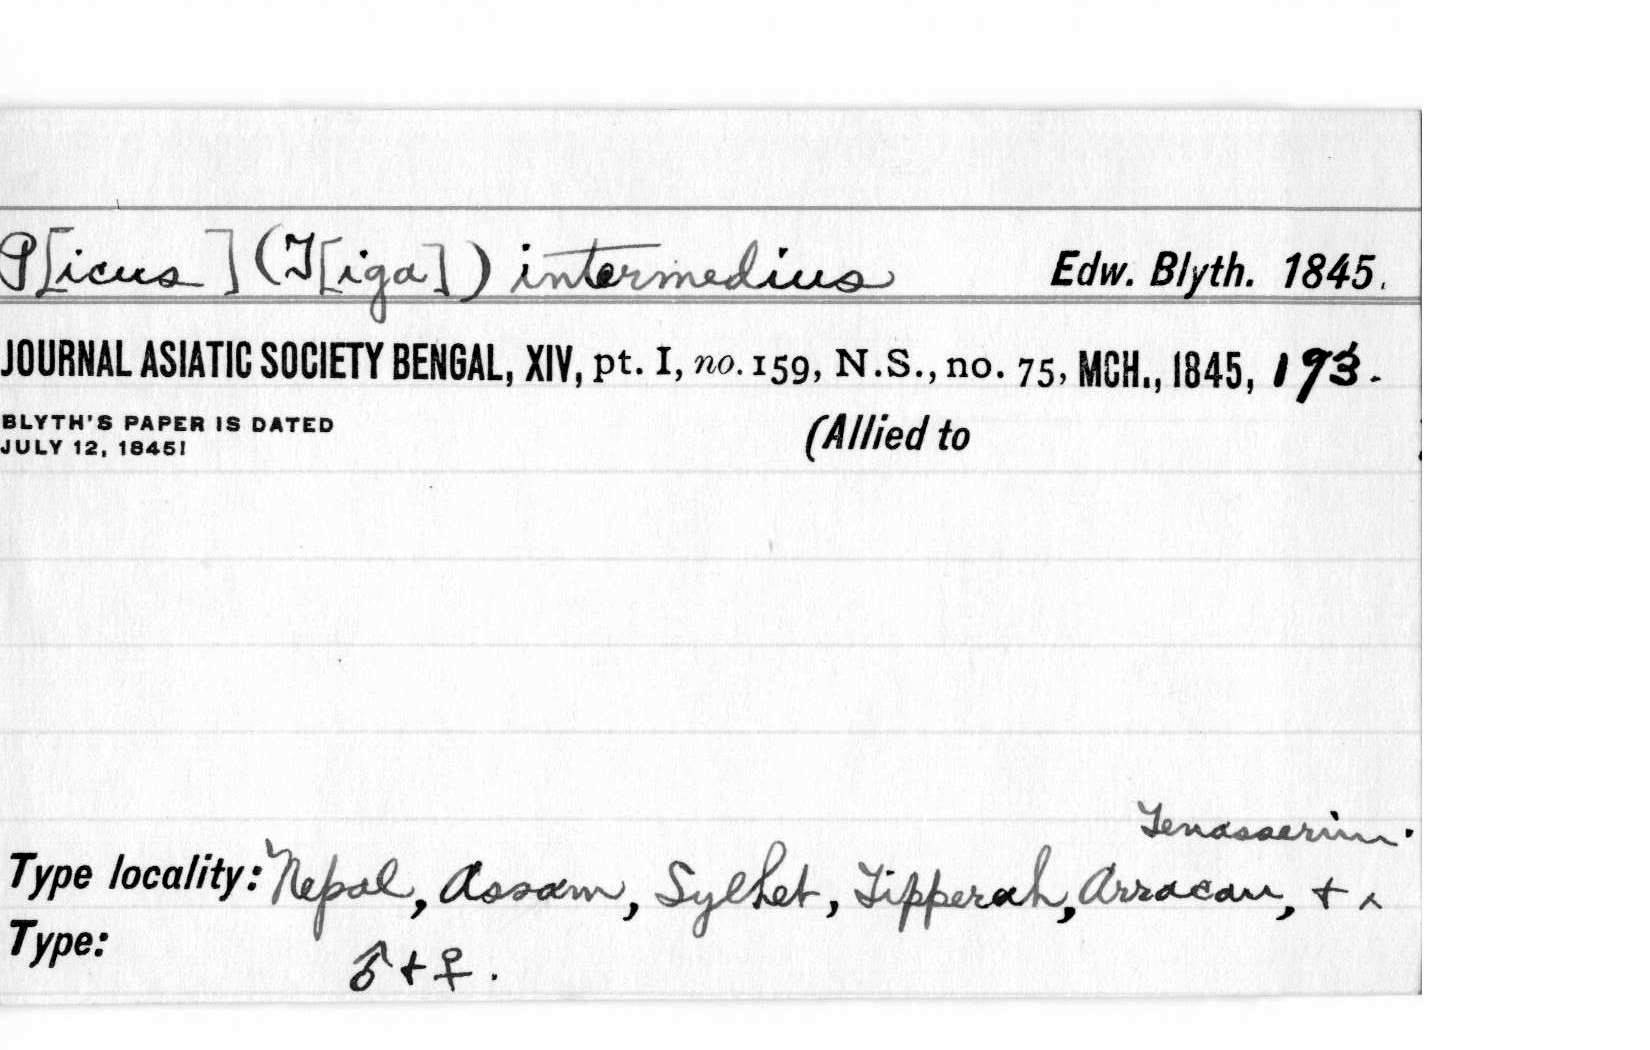 P[icus] (T[iga]) intermedius Edw. Blyth. 1845.
JOURNAL ASIATIC SOCIETY BENGAL, XIV, pt. I, no. 159, N.S., no. 75, MCH., 1845, 193.
BLYTH'S PAPER IS DATED
JULY 12, 1845!
(Allied to
Tenasserim.
Type locality: Nepal, Assam, Sylhet, Tipperah, Arracan, + ^
Type:
♂ + ♀.